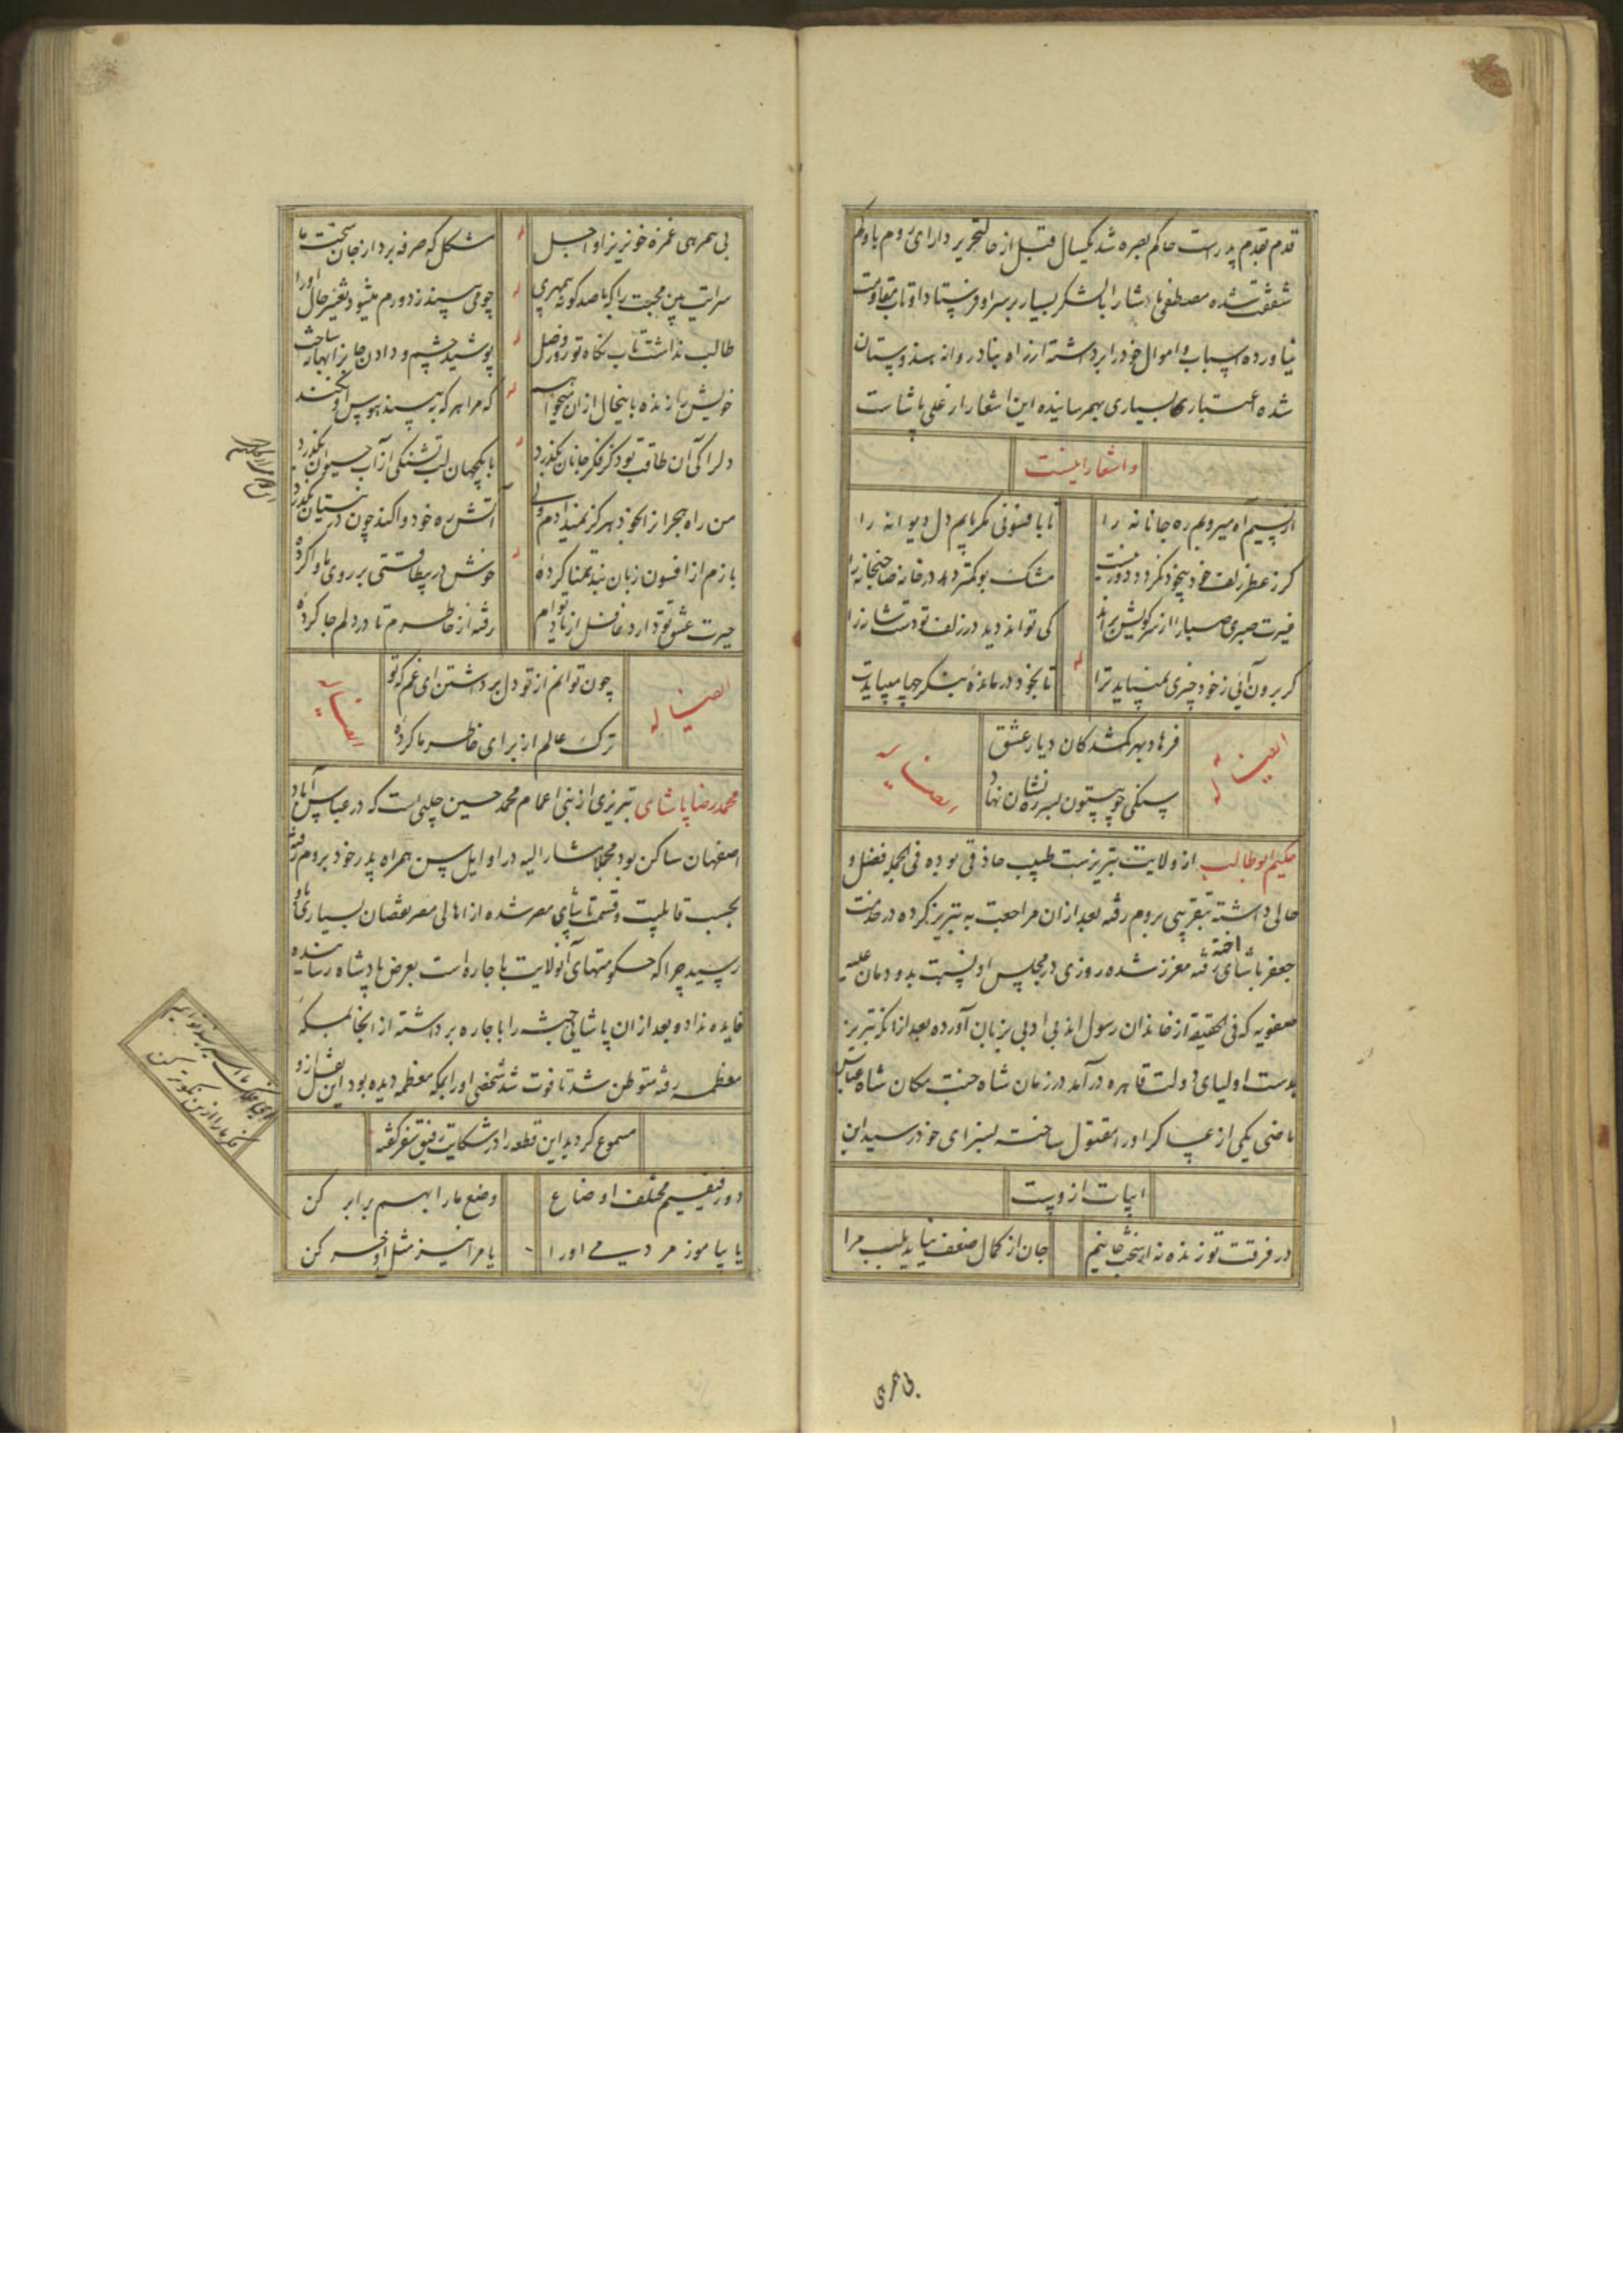 قدم بقدم پدر است حاکم بصره شد یکسال قبل از حال تحریر دارای روم با او کم
شفقت شده مصطفی پادشا را با لشکر بسیار بر سر او فرستاد او تاب مقاومت
نیاورده اسباب و اموال خود را برداشته از راه بنادر روانه هندوستان
شده اعتباری بسیاری بهم رسانیده این اشعار از علی پاشاست
و اشعار اینست
از پیم آه میرویم ره جانانه را
تا بافسونی مگر یابم دل دیوانه را
گر ز عطر زلف خود بیخود نگردد دور نیست
مشک بو کمتر دهد در خانه صاحبخانه را
غیرت صبری صبا را از سر کویش براند
کی تواند دید در زلف تو دست شانه را
گر برون آئی ز خود چیزی نمیباید ترا
تا بخود درمانده بنگر چها میبایدت
ایضا له
فرهاد بهر گمشدگان دیار عشق
سنگی چو بیستون بسر ره نشان نهاد
ایضا له
حکیم ابوطالب از ولایت تبریزست طبیب حاذقی بوده فی الجمله فضل و
حالی داشته بتقریبی بروم رفته بعد از آن مراجعت به تبریز کرده در خدمت
جعفر پاشای اخته رفته معزز شده روزی در مجلس او نسبت بدودمان علیه
صفویه که فی الحقیقه از خاندان رسول اند بی ادبی بزبان آورده بعد از آنکه تبریز
بدست اولیای دولت قاهره درآمد در زمان شاه جنت مکان شاه عباس
ماضی یکی از عساکر او را مقتول ساخته بسزای خود رسید این
ابیات ازوست
در فرقت تو زنده نه از سخت جانیم
جان از کمال ضعف نیاید بلب مرا
بی همرهی
بی همرهی غمزه خونریز او اجل
مشکل که صرفه برد از جان سخت ما
سرایت بین محبت را که با صد گونه بیمهری
چو می بیند ز دورم میشود تغییر حال او را
طالب نداشت تاب نگاه تو روز وصل
پوشید چشم و دادن جان را بهانه ساخت
خویش را زنده باینحال از آن میخواهم
که مرا هر که ببیند هوس او نکند
دل را کی آن طاقت بود کز فکر جانان بگذرد
با یکجهان لب تشنگی از آب حیوان بگذرد
من راه هجر از الخود هرگز نمیدادم ولی
آتش ره خود وا کند چون در نیستان بگذرد
بازم از افسون زبان بند تمنا کرده
خوش در بیطاقتی بر روی ما وا کرده
حیرت عشق تو دارد غافل از یاد توام
رفته از خاطرم تا در دلم جا کرده
ایضا له
چون توانم از تو دل برداشتن ای غم که تو
ترک عالم از برای خاطر ما کرده
ایضا له
محمد رضا پاشای تبریزی از بنی اعمام محمد حسین چلبی است که در عباس آباد
اصفهان ساکن بود مجملا مشار الیه در اوایل سن همراه پدر خود بروم رفته
بحسب قابلیت و قسمت پاشای مصر شده از اهالی مصر نقصان بسیاری باو
رسید چرا که حکومتهای آنولایت باجاره است بعرض پادشاه رسانیده
فایده نداد و بعد از آن پاشائی حبشه را باجاره برداشته از آنجا بمکه
معظمه رفته متوطن شد تا فوت شد شخصی او را بمکه معظمه دیده بود این نقل ازو
مسموع گردید این قطعه را در شکایت رفیق سفر گفته
دو رفیقیم مختلف اوضاع
وضع ما را بهم برابر کن
یا بیاموز مردمی او را
یا مرا نیز مثل او خر کن